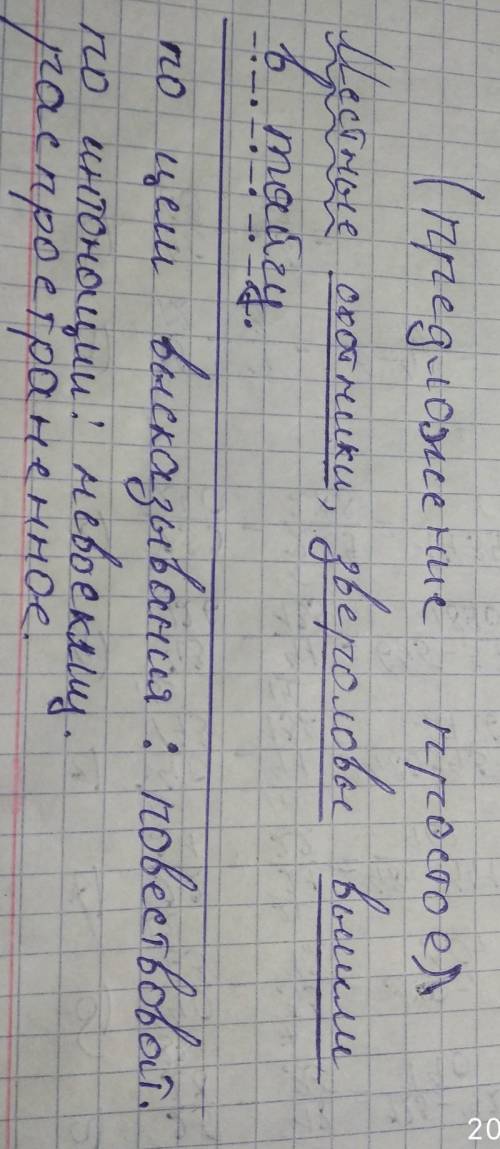 (Предложение простое)
Местные охотники, зверловы вышли
в тайгу.
по цели высказывания: повествоват.
по интонации: невосклиц.
распространенное.
20